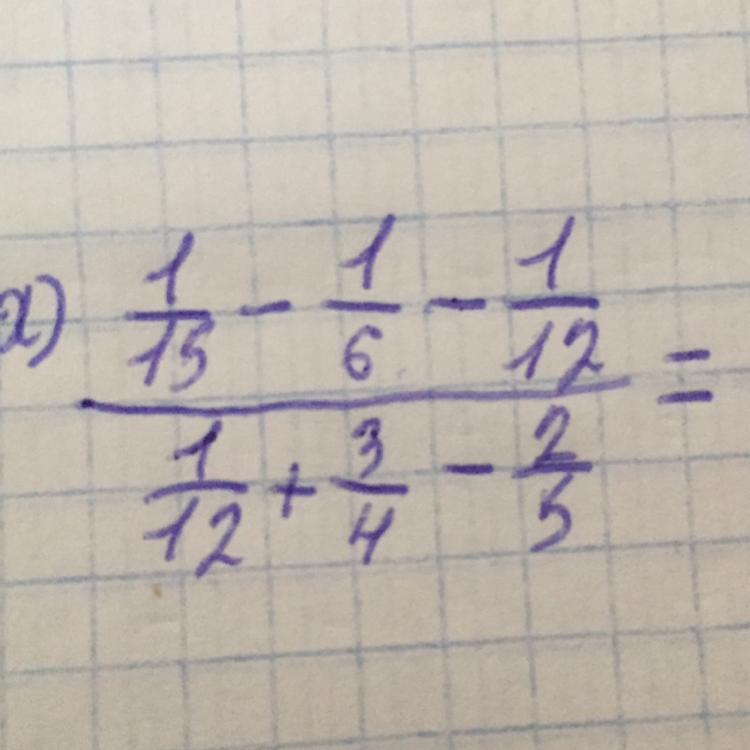 а) 1/15 - 1/6 - 1/12
1/12 + 3/4 - 2/5 =